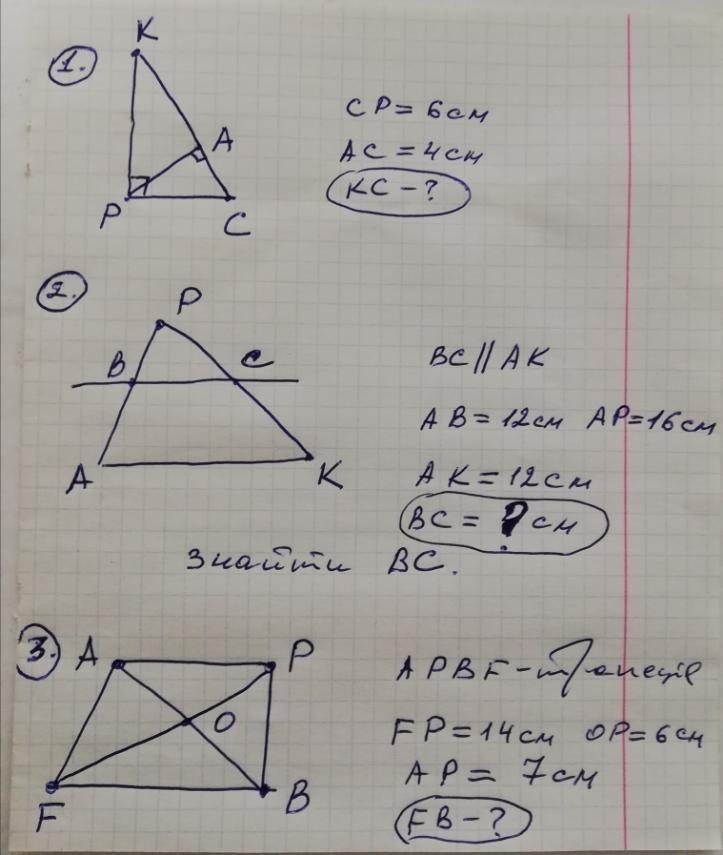 1.
K
A
P
C
CP = 6см
AC = 4см
KC - ?
2.
P
B
C
A
K
BC || AK
AB = 12см AP = 16см
AK = 12см
BC = ? см
Знайти BC.
3.
A
P
O
F
B
APBF - трапеція
FP = 14см OP = 6см
AP = 7см
FB - ?